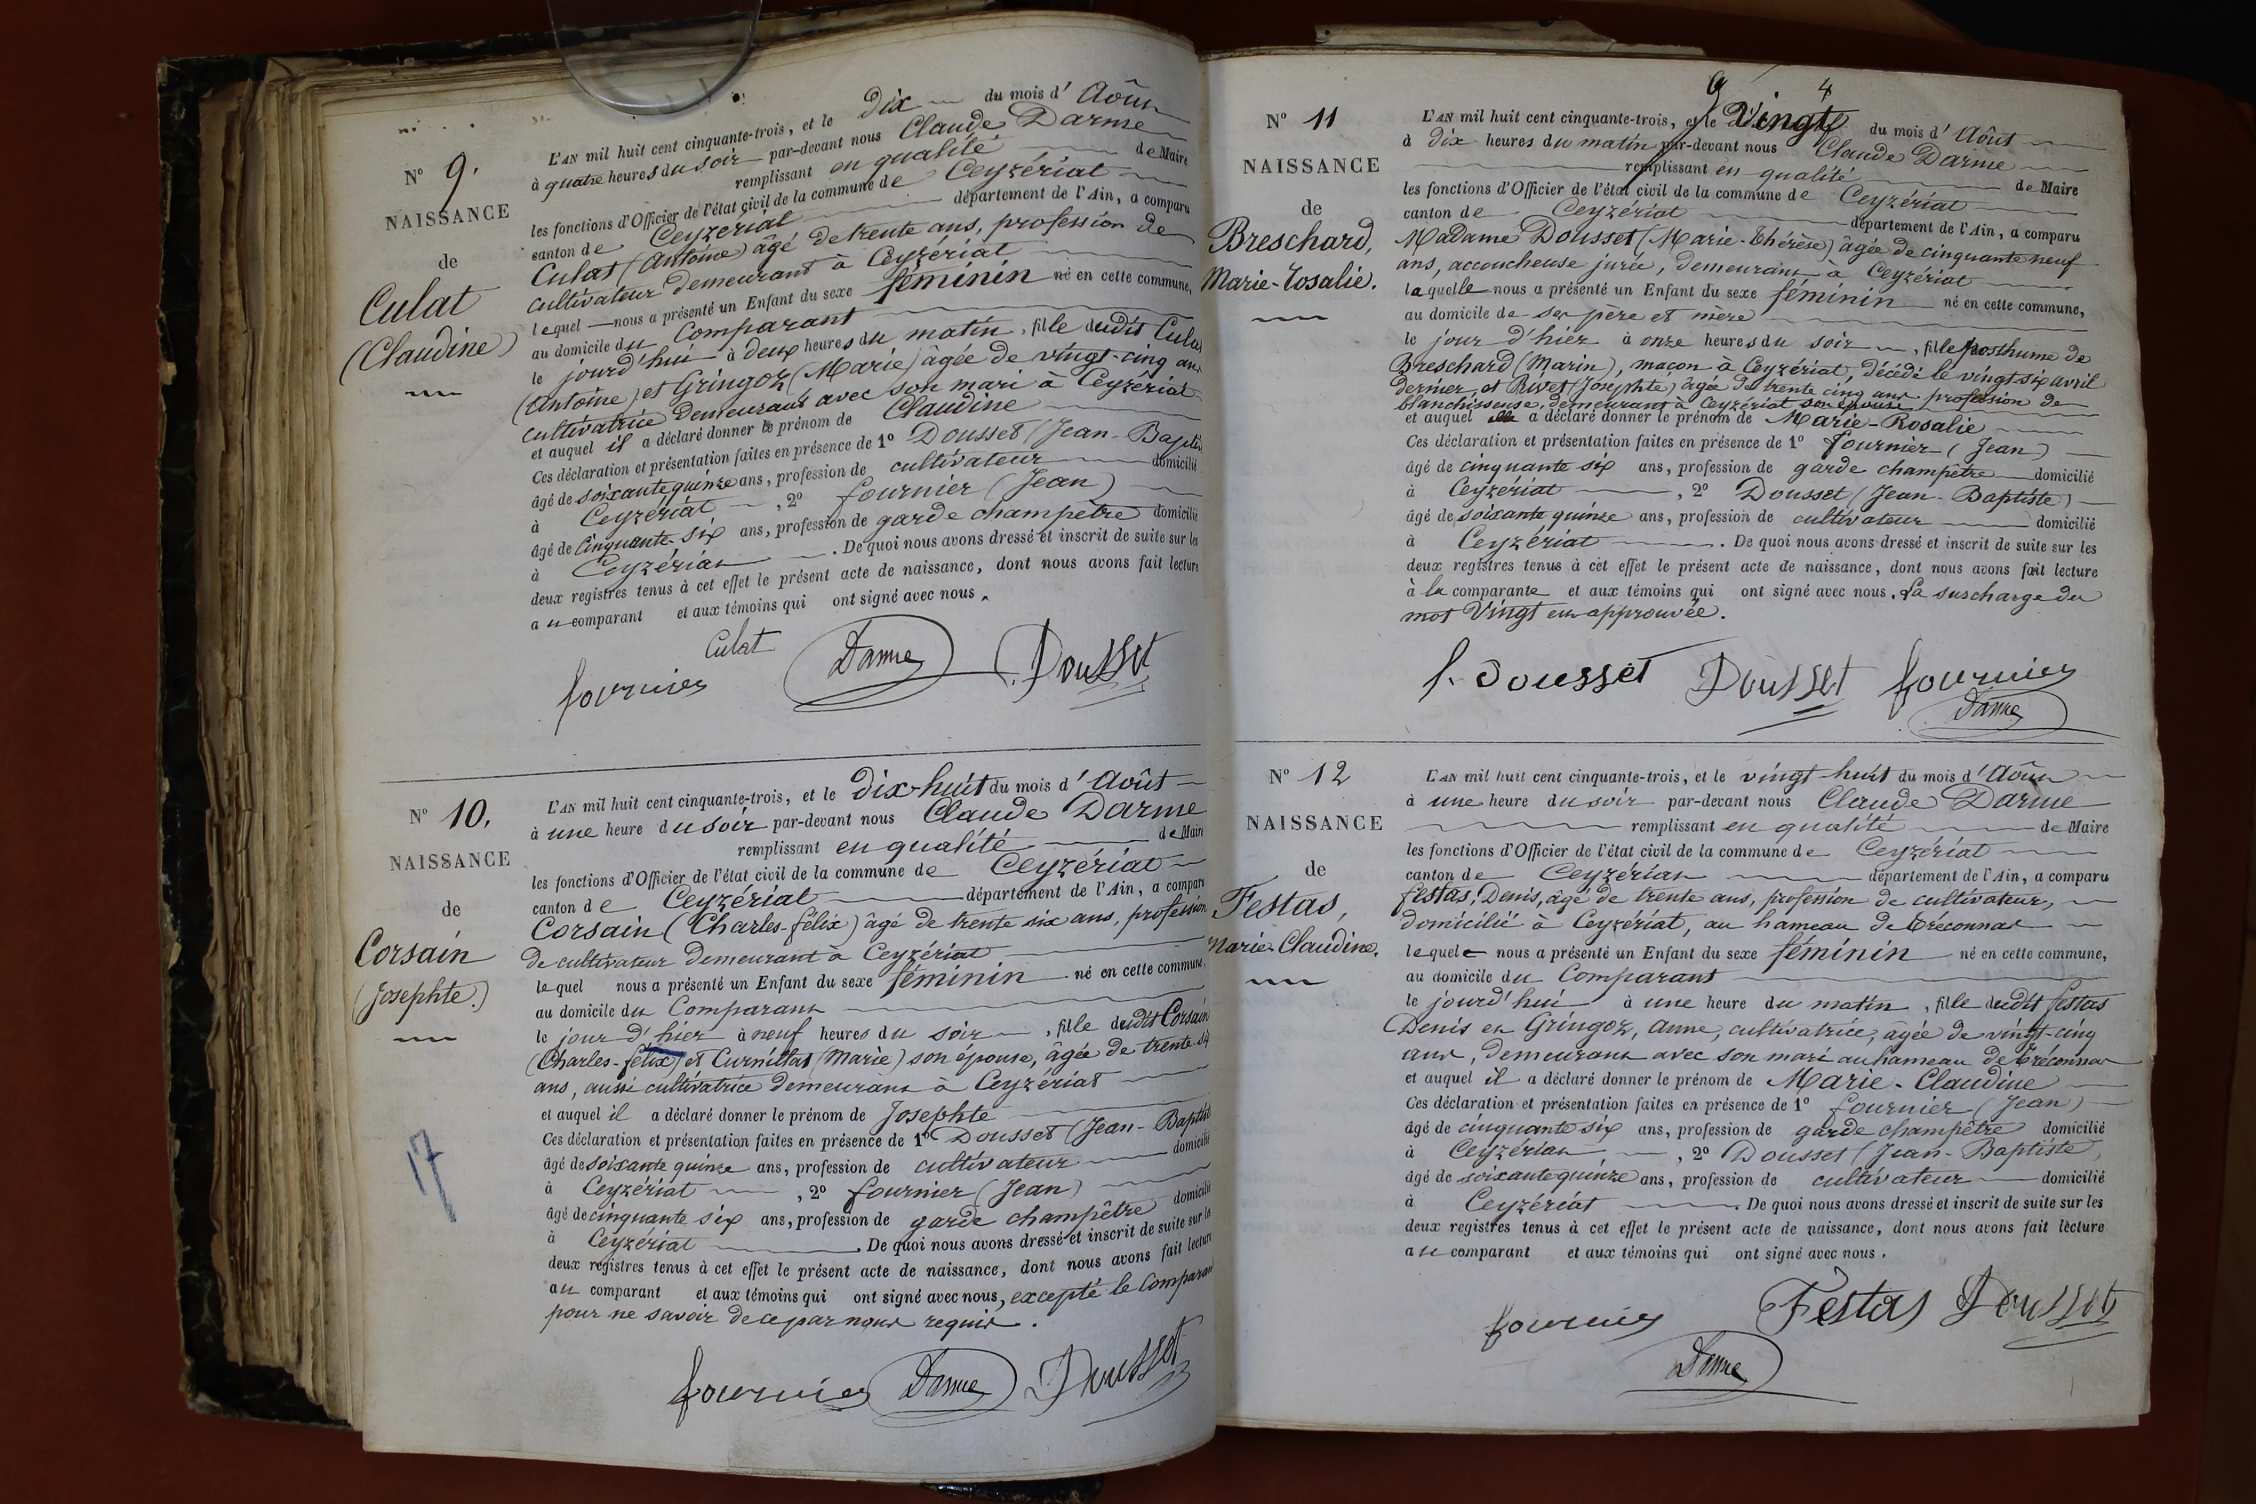 N° 9.
NAISSANCE
de
Culat
(Claudine)
L'AN mil huit cent cinquante-trois, et le Dix du mois d'Août
à quatre heures du soir par-devant nous Claude Darme
remplissant en qualité de Maire
les fonctions d'Officier de l'état civil de la commune de Ceyzériat
canton de Ceyzériat département de l'Ain, a comparu
Culat (Antoine) âgé de trente ans, profession de
cultivateur demeurant à Ceyzériat
lequel nous a présenté un Enfant du sexe féminin né en cette commune,
au domicile du Comparant
le jourd'hui à deux heures du matin, fille dudit Culat
(Antoine) et Gringoz (Marie) âgée de vingt-cinq ans
cultivatrice demeurant avec son mari à Ceyzériat
et auquel il a déclaré donner le prénom de Claudine
Ces déclaration et présentation faites en présence de 1° Dousset (Jean-Baptiste
âgé de soixante quinze ans, profession de cultivateur domicilié
à Ceyzériat, 2° fournier (Jean)
âgé de Cinquante-six ans, profession de garde champêtre domicilié
à Ceyzériat. De quoi nous avons dressé et inscrit de suite sur les
deux registres tenus à cet effet le présent acte de naissance, dont nous avons fait lecture
au comparant et aux témoins qui ont signé avec nous.
Culat Darme Dousset
fournier
N° 10.
NAISSANCE
de
Corsain
(Josephte.)
17
L'AN mil huit cent cinquante-trois, et le Dix-huit du mois d'Août
à une heure du soir par-devant nous Claude Darme
remplissant en qualité de Maire
les fonctions d'Officier de l'état civil de la commune de Ceyzériat
canton de Ceyzériat département de l'Ain, a comparu
Corsain (Charles-félix) âgé de trente six ans, profession
de cultivateur demeurant à Ceyzériat
lequel nous a présenté un Enfant du sexe féminin né en cette commune,
au domicile du Comparant
le jour d'hier à neuf heures du soir, fille dudit Corsain
(Charles-félix) et Curnillat (Marie) son épouse, âgée de trente six
ans, aussi cultivatrice demeurant à Ceyzériat
et auquel il a déclaré donner le prénom de Josephte
Ces déclaration et présentation faites en présence de 1° Dousset (Jean-Baptiste
âgé de soixante quinze ans, profession de cultivateur domicilié
à Ceyzériat, 2° fournier (Jean)
âgé de cinquante six ans, profession de garde champêtre domicilié
à Ceyzériat. De quoi nous avons dressé et inscrit de suite sur les
deux registres tenus à cet effet le présent acte de naissance, dont nous avons fait lecture
au comparant et aux témoins qui ont signé avec nous, excepté le Comparant
pour ne savoir de ce par nous requis.
fournier Darme Dousset
4
N° 11
NAISSANCE
de
Breschard,
Marie-Rosalie.
L'AN mil huit cent cinquante-trois, et le Vingt du mois d'Août
à dix heures du matin par-devant nous Claude Darme
remplissant en qualité de Maire
les fonctions d'Officier de l'état civil de la commune de Ceyzériat
canton de Ceyzériat département de l'Ain, a comparu
Madame Dousset (Marie-Thérèse) âgée de cinquante neuf
ans, accoucheuse jurée, demeurant à Ceyzériat
laquelle nous a présenté un Enfant du sexe féminin né en cette commune,
au domicile de ses père et mère
le jour d'hier à onze heures du soir, fille posthume de
Breschard (Marin), maçon à Ceyzériat, décédé le vingt-six avril
dernier et Rivet (Josephte) âgée de trente cinq ans profession de
blanchisseuse, demeurant à Ceyzériat son épouse
et auquel elle a déclaré donner le prénom de Marie-Rosalie
Ces déclaration et présentation faites en présence de 1° fournier (Jean)
âgé de cinquante six ans, profession de garde champêtre domicilié
à Ceyzériat, 2° Dousset (Jean-Baptiste)
âgé de soixante quinze ans, profession de cultivateur domicilié
à Ceyzériat. De quoi nous avons dressé et inscrit de suite sur les
deux registres tenus à cet effet le présent acte de naissance, dont nous avons fait lecture
à la comparante et aux témoins qui ont signé avec nous. La suscharge du
mot Vingt est approuvée.
f. Dousset Dousset fournier
Darme
N° 12
NAISSANCE
de
Festas,
Marie-Claudine.
L'AN mil huit cent cinquante-trois, et le vingt-huit du mois d'Août
à une heure du soir par-devant nous Claude Darme
remplissant en qualité de Maire
les fonctions d'Officier de l'état civil de la commune de Ceyzériat
canton de Ceyzériat département de l'Ain, a comparu
festas, Denis, âgé de trente ans, profession de cultivateur,
domicilié à Ceyzériat, au hameau de tréconnas
lequel nous a présenté un Enfant du sexe féminin né en cette commune,
au domicile du Comparant
le jourd'hui à une heure du matin, fille dudit festas
Denis et Gringoz, Anne, cultivatrice, agée de vingt-cinq
ans, demeurant avec son mari au hameau de tréconnas
et auquel il a déclaré donner le prénom de Marie-Claudine
Ces déclaration et présentation faites en présence de 1° fournier (Jean)
âgé de cinquante six ans, profession de garde champêtre domicilié
à Ceyzériat, 2° Dousset (Jean-Baptiste,
âgé de soixante quinze ans, profession de cultivateur domicilié
à Ceyzériat. De quoi nous avons dressé et inscrit de suite sur les
deux registres tenus à cet effet le présent acte de naissance, dont nous avons fait lecture
au comparant et aux témoins qui ont signé avec nous.
fournier Festas Dousset
Darme